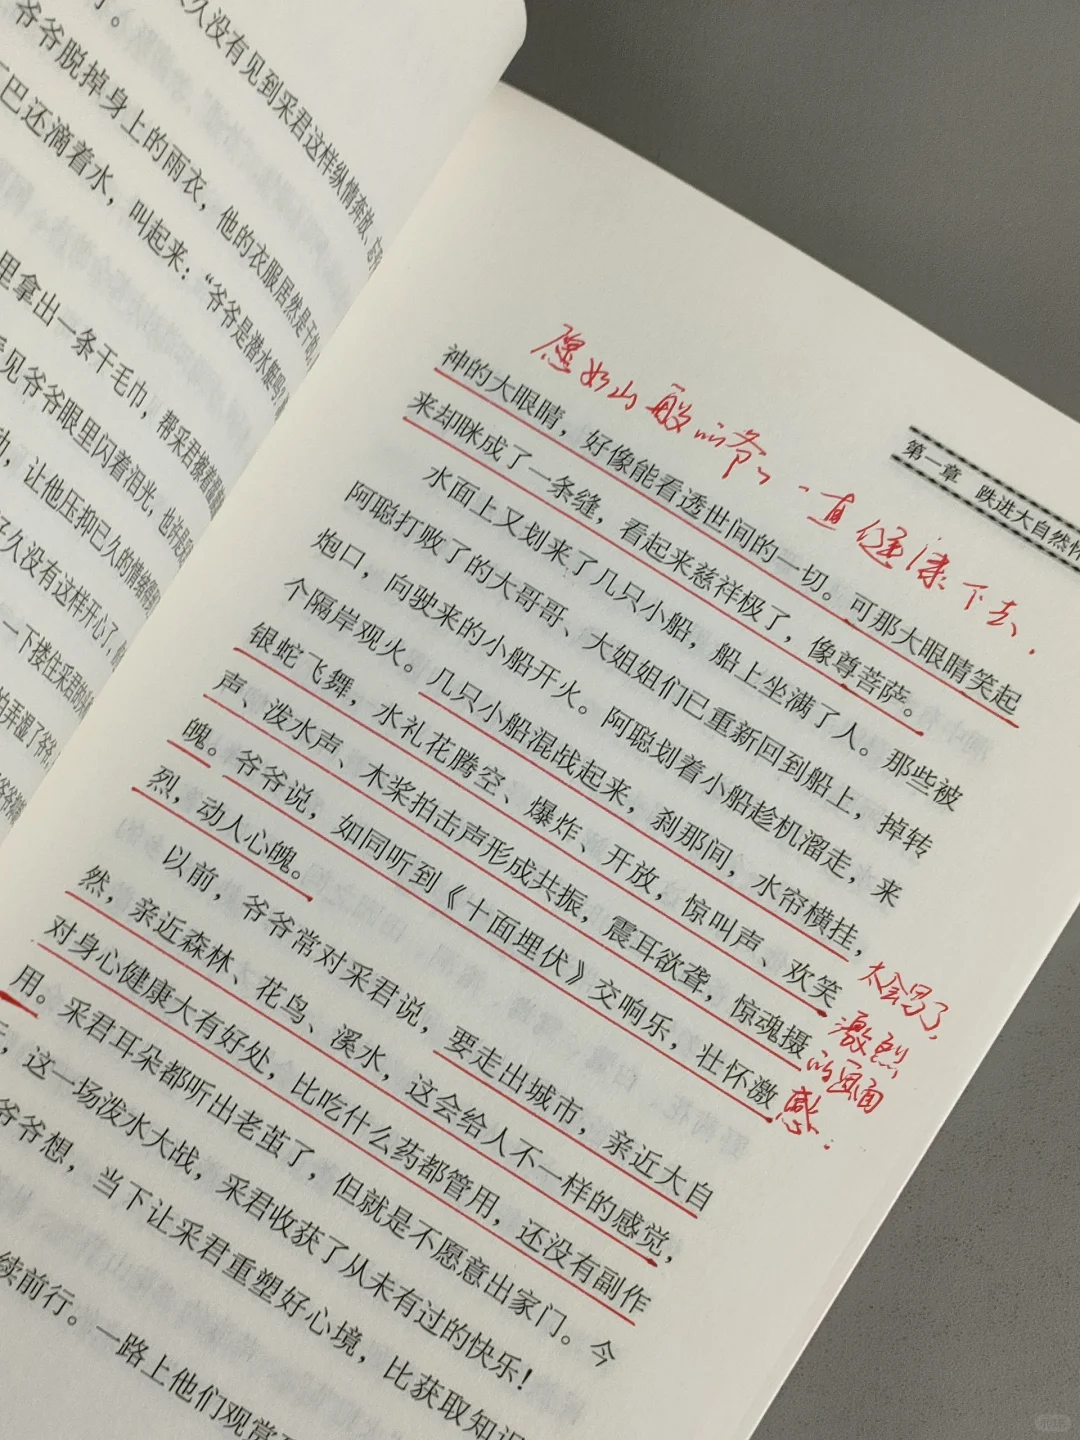 久没有见到采君这样纵情奔放、
爷爷脱掉身上的雨衣，他的衣服居然是干的
巴还滴着水，叫起来：“爷爷是潜水艇吗？
里拿出一条干毛巾，帮采君擦着
见爷爷眼里闪着泪光，也许是
，让他压抑已久的情绪得到
好久没有这样开心了，
一下搂住采君的
怕弄湿了爷
第一章 跌进大自然
愿如山一般的爷爷一直健康下去.
神的大眼睛，好像能看透世间的一切。可那大眼睛笑起
来却眯成了一条缝，看起来慈祥极了，像尊菩萨。
水面上又划来了几只小船，船上坐满了人。那些被
阿聪打败了的大哥哥、大姐姐们已重新回到船上，掉转
炮口，向驶来的小船开火。阿聪划着小船趁机溜走，来
个隔岸观火。几只小船混战起来，刹那间，水帘横挂，
银蛇飞舞，水礼花腾空、爆炸、开放，惊叫声、欢笑
声、泼水声、木桨拍击声形成共振，震耳欲聋，惊魂摄
魄。爷爷说，如同听到《十面埋伏》交响乐，壮怀激
烈，动人心魄。
太会写了，
激烈
的画面
感.
以前，爷爷常对采君说，要走出城市，亲近大自
然，亲近森林、花鸟、溪水，这会给人不一样的感觉，
对身心健康大有好处，比吃什么药都管用，还没有副作
用。采君耳朵都听出老茧了，但就是不愿意出家门。今
，这一场泼水大战，采君收获了从未有过的快乐！
爷爷想，当下让采君重塑好心境，比获取知识
续前行。一路上他们观赏